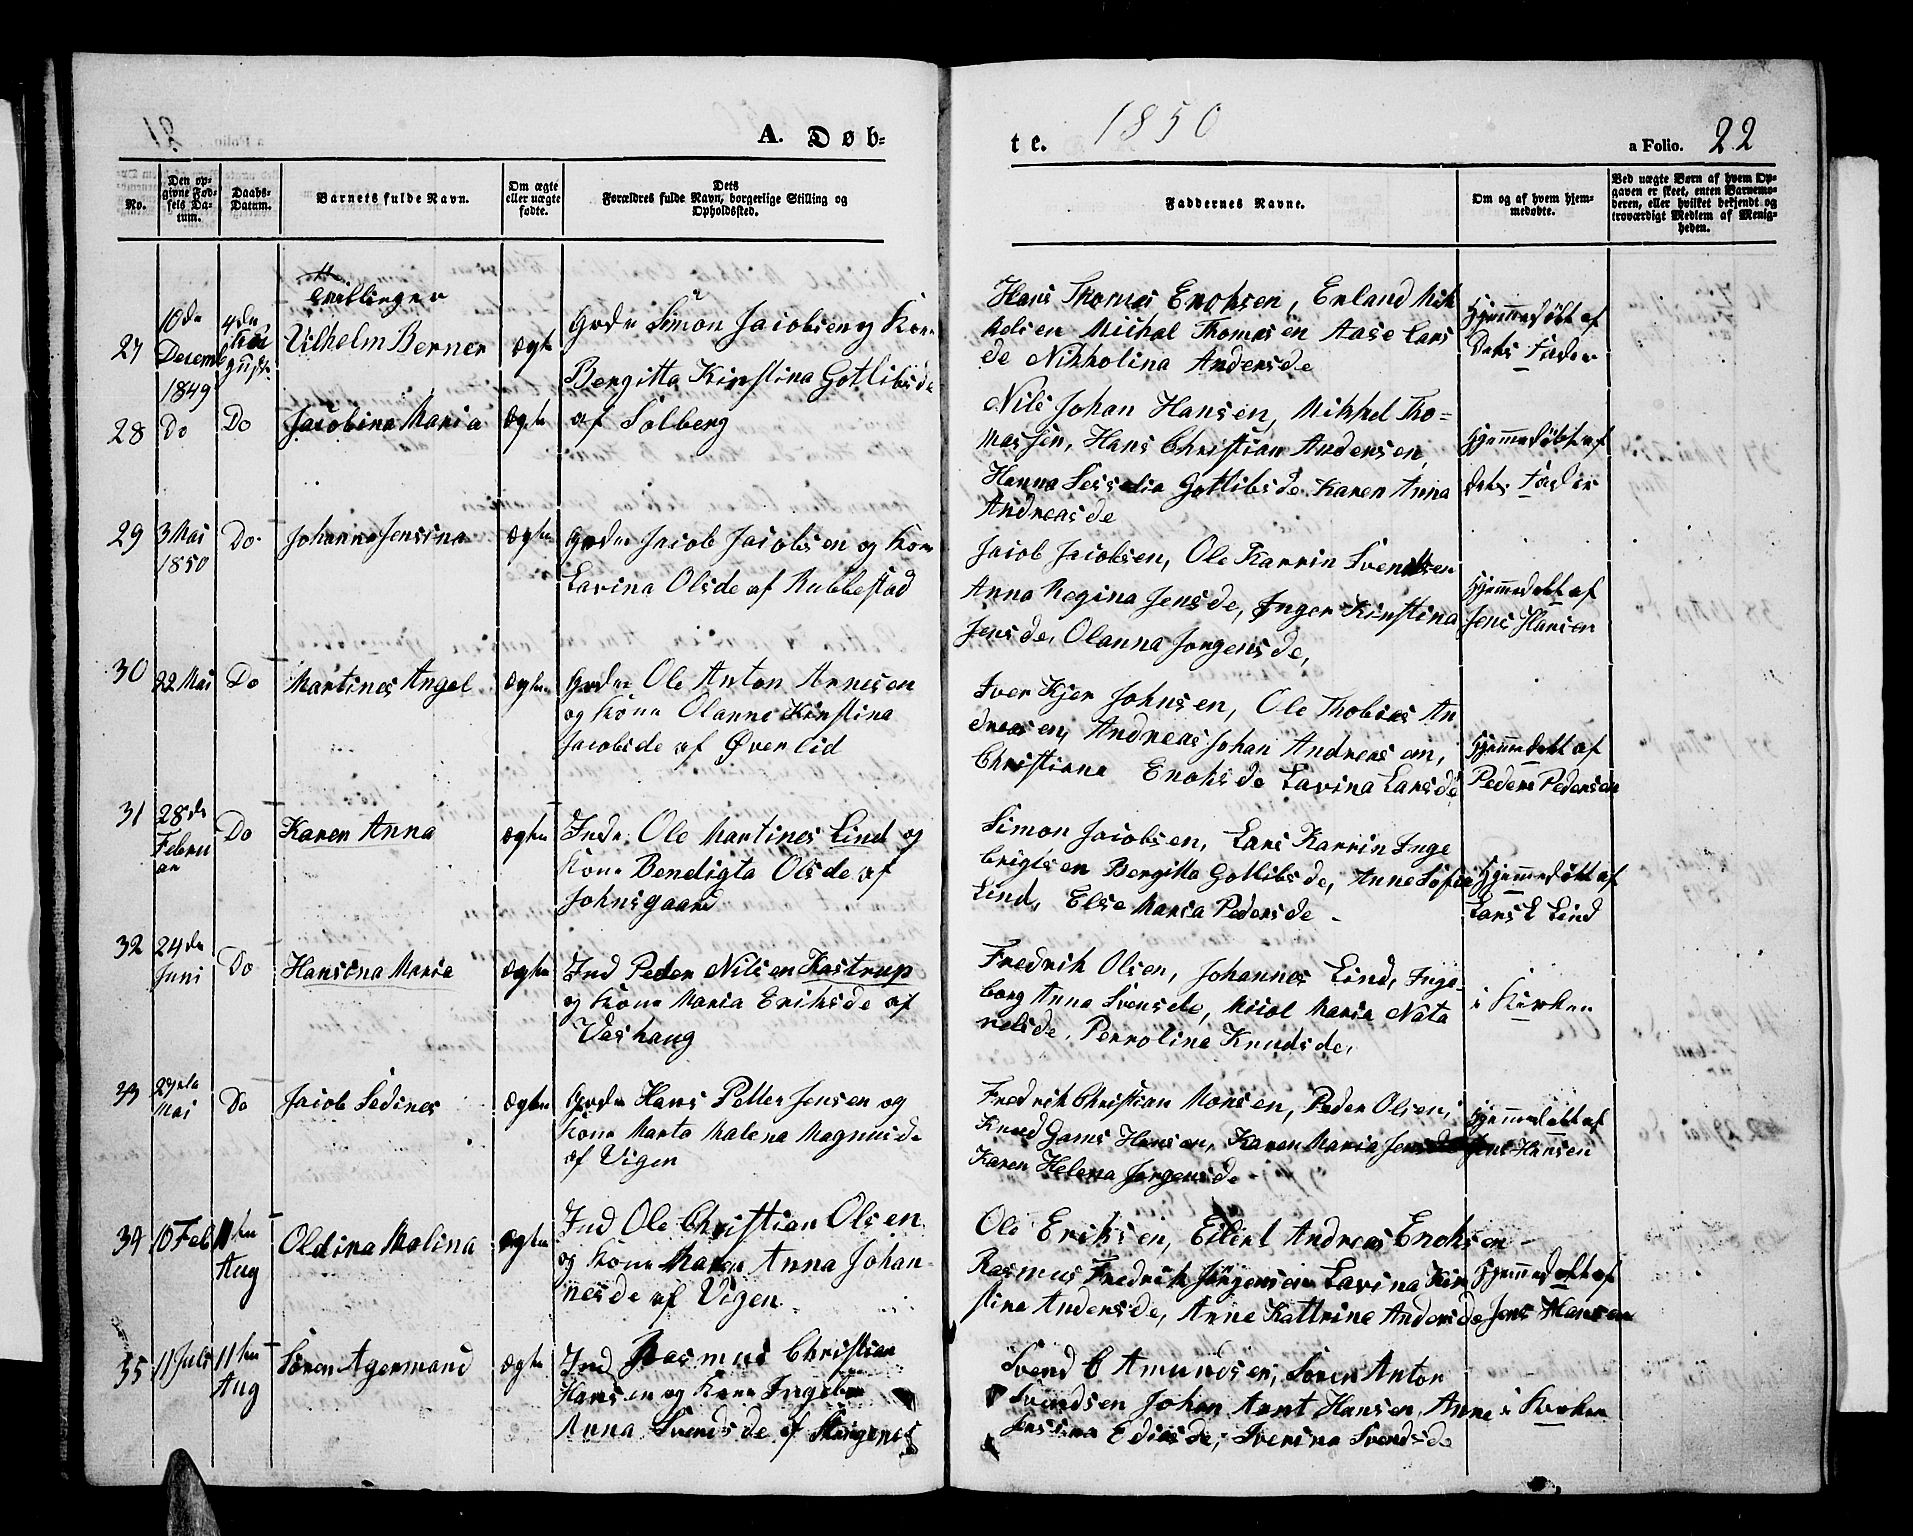 A. Døb=
te. 1850
a Folio. 22
No.
Den op-
givne Fød-
sels Da-
tum.
Daabs-
Datum.
Barnets fulde Navn.
Om ægte
eller uægte
fødte.
Dets
Forældres fulde Navn, borgerlige Stilling og
Opholdssted.
Faddernes Navne.
Om og af hvem hjem-
medøbte.
Ved uægte Børn af hvem Op-
gaven er skeet, enten Barnemo-
deren, eller hvilket bekjendt og
troværdigt Medlem af Menig-
heden.
27
10de
Decemb
1849
4de
Tvillinger
Vilhelm Berner
Ægte
Grdr Simon Jacobsen og Kone
Bergitta Kirstina Gotlibsde
af Solberg
Hans Thomas Enoksen, Erland Mik
kelsen Michal Thomasen Aase Lars
de Nikkolina Andersde
Hjemmedøbt af
dets Fader
28
Do
Do
Jacobina Maria
Ægte
Nils Johan Hansen, Mikkel Tho=
massen, Hans Christian Andersen,
Hanna Sesselia Gotlibsde Karen Anna
Andreasde
Hjemmedøbt af
dets Fader
29
3 Mai
1850
Do
Johanna Jensina
Ægte
Grdr Jacob Jacobsen og Kone
Lavina Olsde af Rubbestad
Jacob Jacobsen, Ole Karrin Svendsen
Anna Regina Jensde, Inger Kirstina
Jensde, Olanna Jorgensde,
Hjemmedøbt af
Jens Hansen
30
22 Mai
Do
Martines Angel
Ægte
Grdr Ole Anton Arnesen
og Kone Olanna Kirstina
Jacobsde af Øverlid
Iver Kjer Johnsen, Ole Thobias An
dreasen, Andreas Johan Andreasen,
Christiana Enoksde Lavina Larsde
Hjemmedøbt af
Peder Pedersen
31
28de
Febru
ar
Do
Karen Anna
Ægte
Indr Ole Martines Lind og
Kone Bendigta Olsde af
Johnsgaard
Simon Jacobsen, Lars Karrin Inge
brigtsen Bergitta Gotlibsde, Anne Sofie
Lind, Else Maria Pedersde
Hjemmedøbt af
Lars L Lind
32
24de
Juni
Do
Hansina Marie
Ægte
Ind Peder Nilsen Kastrup
og Kone Maria Eriksde af
Vashaug
Fredrik Olsen, Johannes Lind, Inge-
borg Anna Svensde, Maria Nata
nelsde, Perroline Knudsde,
i Kirken
33
27de
Mai
Do
Jacob Sedines
Ægte
Grdr Hans Petter Jensen og
Kone Marta Malena Magnusde
af Vigen
Fredrik Christian Monsen, Peder Olsen,
Knud Hansen, Karen Maria Jensde
Karen Helena Jørgensde
Hjemmedøbt af
Jens Hansen
34
10 Feb
11te
Aug
Oldina Malina
Ægte
Ind Ole Christian Olsen
og Kone Maren Anna Johan-
nesde af Vigen
Ole Eriksen, Eilert Andreas Enoksen
Rasmus Fredrik Jørgensen Lavina Kir
stina Andersde, Anne Kattrina Andersde
Hjemmedøbt af
Jens Hansen
35
11 Juli
11te
Aug
Søren Agermand
Ægte
Ind Rasmus Christian
Hansen og Kone Ingebor
Anna Svendsde af
Svend C Amundsen, Søren Anton
Svendsen Johan Arnt Hansen, Anne
Jensina Ediasde, Iverina Svendsde
i Kirken